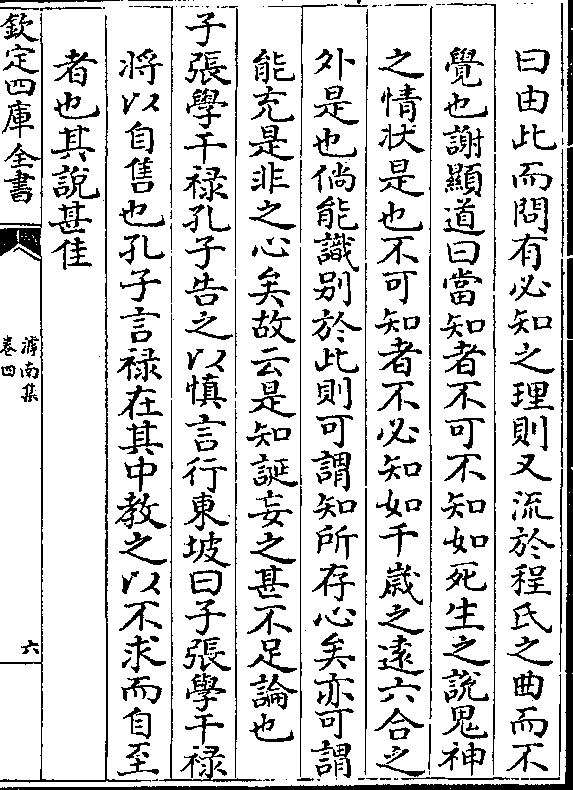 曰由此而問有必知之理則又流於程氏之曲而不
覺也謝顯道曰當知者不可不知如死生之說鬼神
之情狀是也不可知者不必知如千歲之遠六合之
外是也倘能識别於此則可謂知所存心矣亦可謂
能充是非之心矣故云是知誕妄之甚不足論也
子張學干禄孔子告之以慎言行東坡曰子張學干禄
将以自售也孔子言禄在其中教之以不求而自至
者也其說甚佳
欽定四庫全書
滹南集
卷四
六